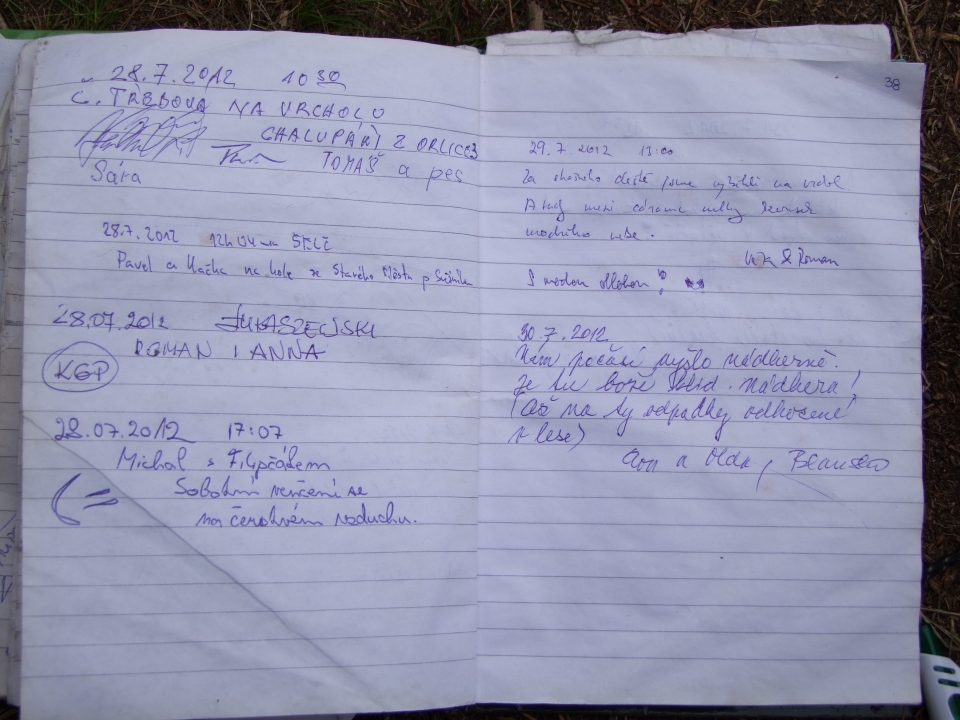 28.7.2012 10 30
Č. TŘEBOVA NA VRCHOLU
CHALUPÁŘI Z ORLICE
TOMÁŠ a pes
Sára
28.7.2012 12h04
Pavel a na kole ze Starého Města p
28.07.2012 ŁUKASZEWSKI
ROMAN I ANNA
KGP
28.07.2012 17:07
Michal s Filipčákem
Sobotní venčení se
na čerstvém vzduchu.
38
29.7.2012 13:00
Za deště jsme vyběhli na vrchol
A mezi
modrého nebe.
& Roman
S modrou oblohou
30.7.2012
Nám počasí vyšlo nádherně.
Je tu boží klid. nádhera!
(až na ty odpadky odhozené
v lese)
a Olda,